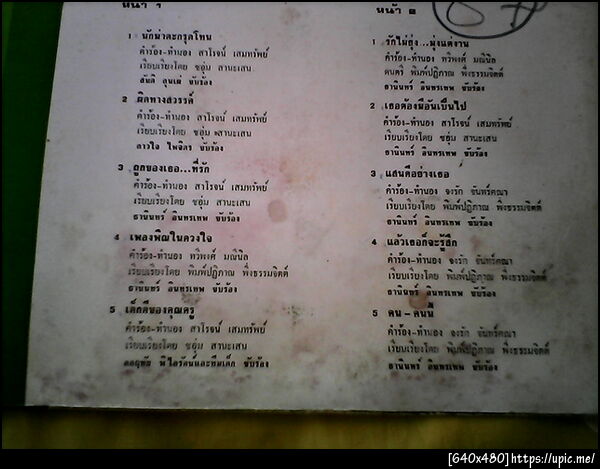 หน้า ๑
1 นักฆ่าตะกรุดโทน
คำร้อง-ทำนอง สาโรจน์ เสมทรัพย์
เรียบเรียงโดย ชอุ่ม สานะเสน
สันติ ลุนเผ่ ขับร้อง
2 ผิดทางสวรรค์
คำร้อง-ทำนอง สาโรจน์ เสมทรัพย์
เรียบเรียงโดย ชอุ่ม สานะเสน
ดาวใจ ไพจิตร ขับร้อง
3 ถูกของเธอ...ที่รัก
คำร้อง-ทำนอง สาโรจน์ เสมทรัพย์
เรียบเรียงโดย ชอุ่ม สานะเสน
ธานินทร์ อินทรเทพ ขับร้อง
4 เพลงพิณในดวงใจ
คำร้อง-ทำนอง ทวีพงศ์ มณีนิล
เรียบเรียงโดย พิมพ์ปฏิภาณ พึ่งธรรมจิตต์
ธานินทร์ อินทรเทพ ขับร้อง
5 เด็กดีของคุณครู
คำร้อง-ทำนอง สาโรจน์ เสมทรัพย์
เรียบเรียงโดย ชอุ่ม สานะเสน
ขับร้อง
หน้า ๒
1 รักไม่ยุ่ง..มุ่งแต่งาน
คำร้อง-ทำนอง ทวีพงศ์ มณีนิล
ดนตรี พิมพ์ปฏิภาณ พึ่งธรรมจิตต์
ธานินทร์ อินทรเทพ ขับร้อง
2 เธอต้องมีอันเป็นไป
คำร้อง-ทำนอง สาโรจน์ เสมทรัพย์
เรียบเรียงโดย ชอุ่ม สานะเสน
ธานินทร์ อินทรเทพ ขับร้อง
3 แสนดีอย่างเธอ
คำร้อง-ทำนอง จงรัก จันทร์คณา
เรียบเรียงโดย พิมพ์ปฏิภาณ พึ่งธรรมจิตต์
ธานินทร์ อินทรเทพ ขับร้อง
4 แล้วเธอก็จะรู้สึก
คำร้อง-ทำนอง จงรัก จันทร์คณา
เรียบเรียงโดย พิมพ์ปฏิภาณ พึ่งธรรมจิตต์
ธานินทร์ อินทรเทพ ขับร้อง
5 คน - คนนี้
คำร้อง-ทำนอง จงรัก จันทร์คณา
เรียบเรียงโดย พิมพ์ปฏิภาณ พึ่งธรรมจิตต์
ธานินทร์ อินทรเทพ ขับร้อง
[640x480]https://upic.me/